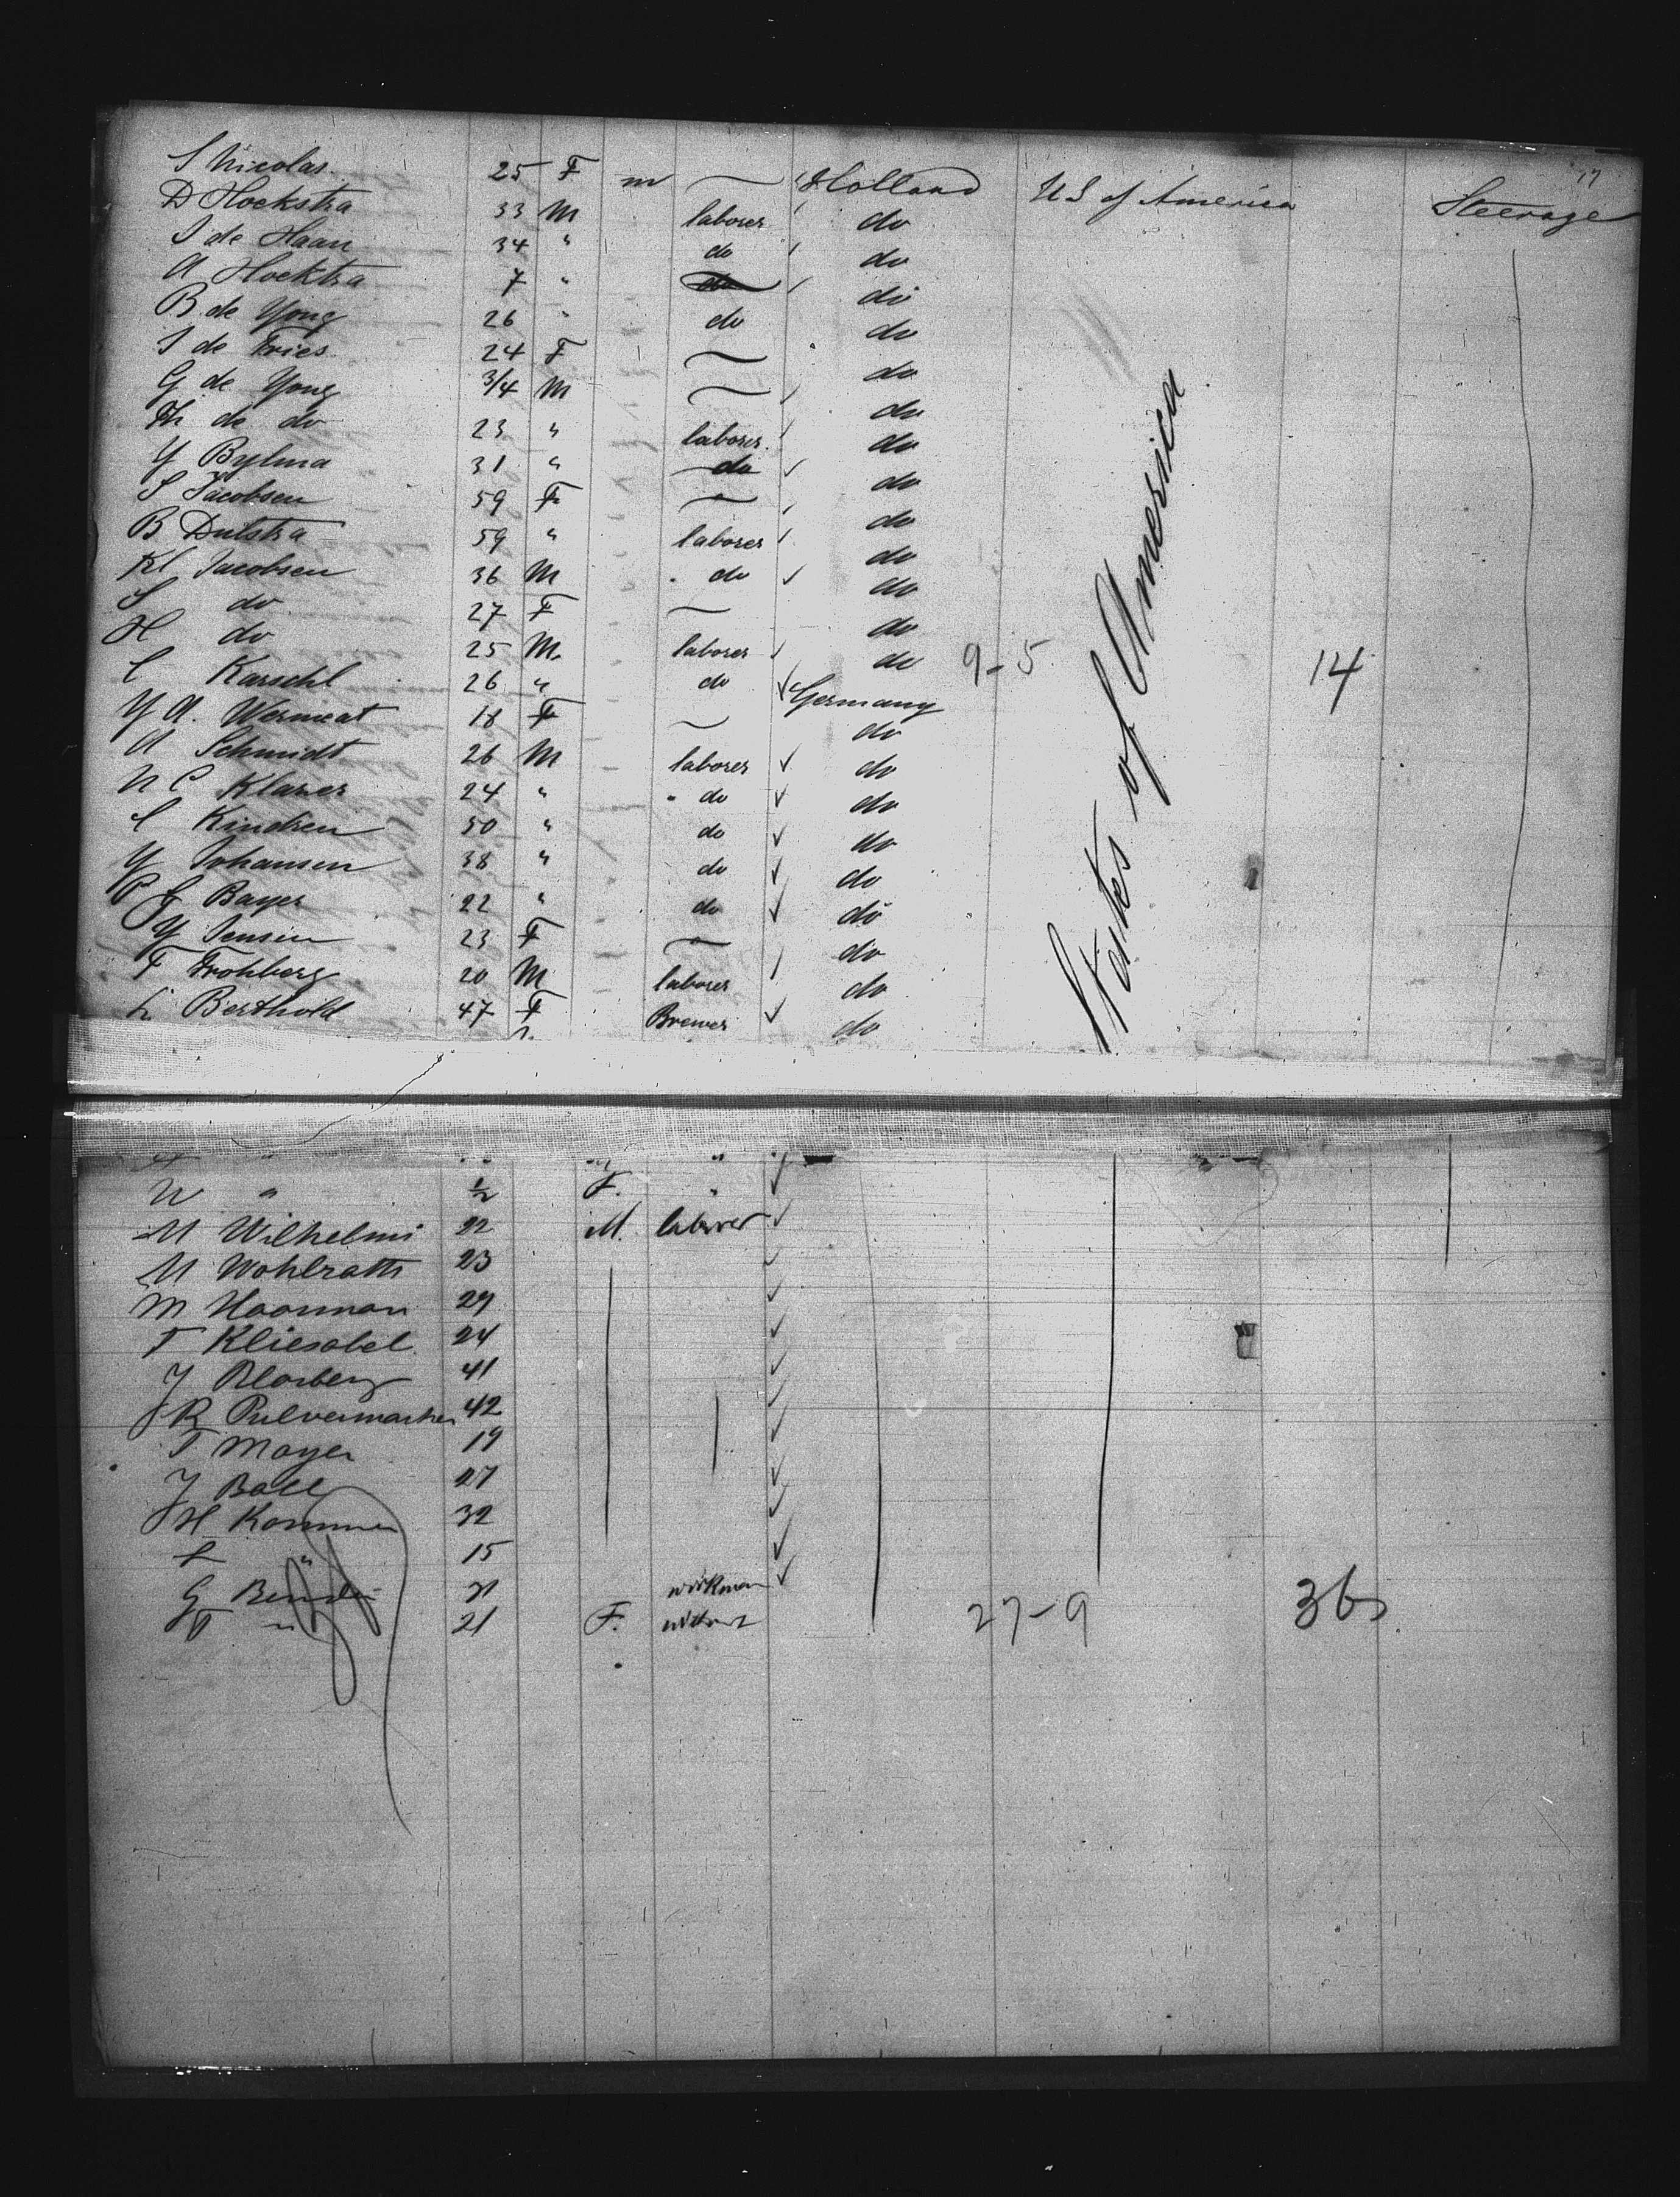 17
S Nicolas 25 F m — Holland US of America Steerage
D Hoekstra 33 M laborer do
J de Haan 34 " do do
A Hoektra 7 " do do
B de Yong 26 " do do
J de Fries 24 F — do
G de Yong 3/4 M — do
Th de do 23 " laborer do
Y Bylma 31 " do do
S Jacobsen 59 F — do
B Dulstra 59 " laborer do
Kl Jacobsen 36 M do do
S do 27 F — do
H do 25 M laborer do 9-5 14
C Karschl 26 " do Germany
Y A. Wermeat 18 F — do
A Schmidt 26 M laborer do
N C Klarer 24 " do do
C Kindsen 50 " do do
Y Johansen 38 " do do
P J Bayer 22 " do do
Y Jensen 23 F — do
F Frohberg 20 M laborer do
L Berthold 47 F Brewer do
States of America
N " 1/2 F. "
M Wilhelmi 22 M. laborer
M Wohlrath 23
M Hoorman 29
T Kliesobel 24
J Blosberg 41
R Pulvermacher 42
T Mayer 19
J Ball 27
H Kommer 32
L " 15
G Bender 31 workman
T " 21 F. 27-9 36